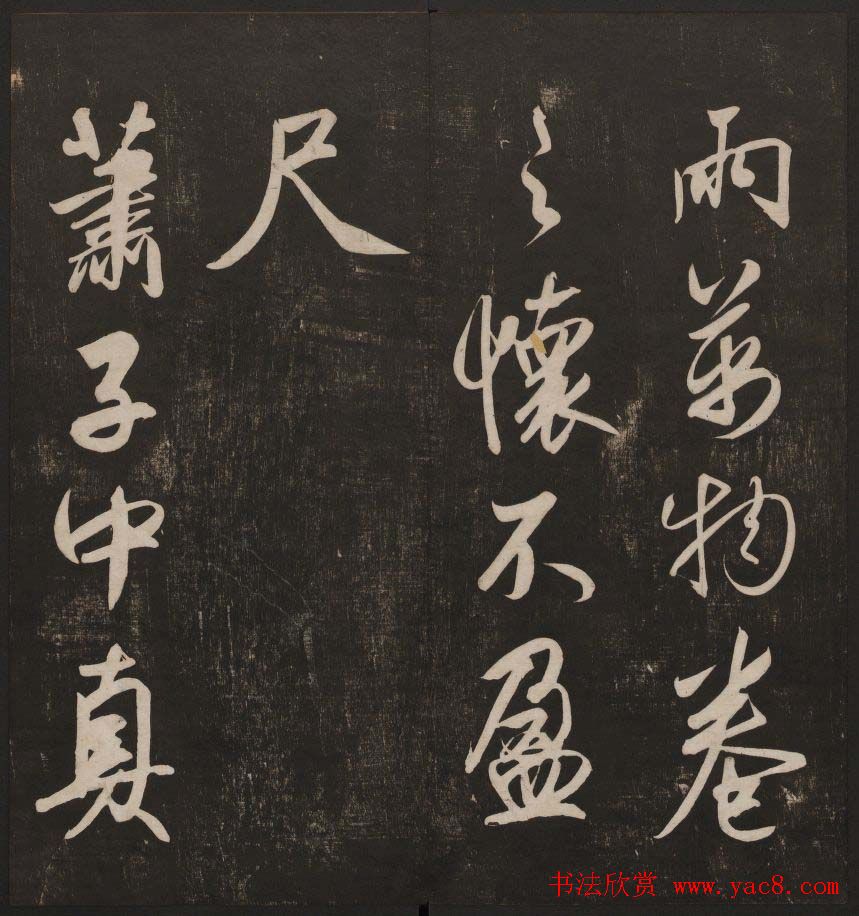 雨萬物卷
之懷不盈
尺
蕭子中真
书法欣赏 www.yac8.com